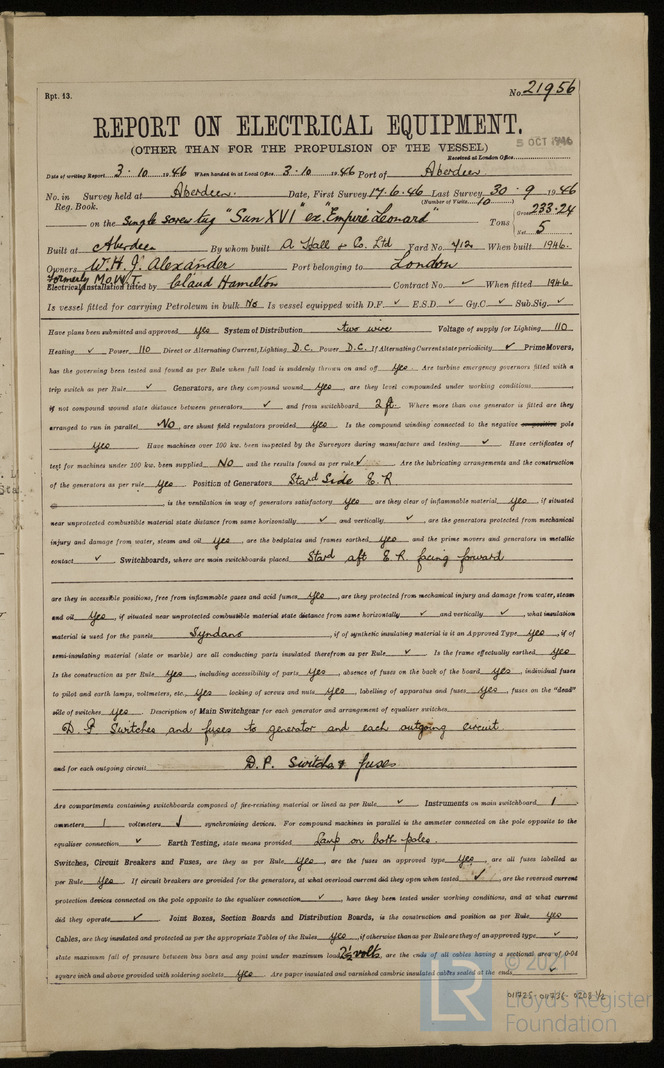 Rpt. 13.
No. 21956
REPORT ON ELECTRICAL EQUIPMENT.
(OTHER THAN FOR THE PROPULSION OF THE VESSEL)
5 OCT 1946
Received at London Office
Date of writing Report 3.10.1946 When handed in at Local Office 3.10.1946 Port of Aberdeen
No. in Survey held at Aberdeen. Date, First Survey 17.6.46 Last Survey 30.9.1946
Reg. Book. (Number of Visits 10)
on the Single screw tug "Sun XVI" ex "Empire Leonard" Tons Gross 233.24 Net 5
Built at Aberdeen By whom built A Hall & Co. Ltd Yard No. 412 When built 1946.
Owners W. H. J. Alexander Port belonging to London
Formerly M.O.W/T.
Electrical Installation fitted by Claud Hamilton Contract No. ✓ When fitted 1946
Is vessel fitted for carrying Petroleum in bulk No Is vessel equipped with D.F. ✓ E.S.D. ✓ Gy.C ✓ Sub.Sig. ✓
Have plans been submitted and approved yes System of Distribution two wire Voltage of supply for Lighting 110
Heating ✓ Power 110 Direct or Alternating Current, Lighting D.C. Power D.C. If Alternating Current state periodicity ✓ Prime Movers,
has the governing been tested and found as per Rule when full load is suddenly thrown on and off yes. Are turbine emergency governors fitted with a
trip switch as per Rule ✓ Generators, are they compound wound yes, are they level compounded under working conditions
if not compound wound state distance between generators ✓ and from switchboard 2 ft. Where more than one generator is fitted are they
arranged to run in parallel No, are shunt field regulators provided yes Is the compound winding connected to the negative or positive pole
yes Have machines over 100 kw. been inspected by the Surveyors during manufacture and testing ✓ Have certificates of
test for machines under 100 kw. been supplied No and the results found as per rule ✓ Are the lubricating arrangements and the construction
of the generators as per rule yes Position of Generators Starᵈ Side E.R.
, is the ventilation in way of generators satisfactory yes are they clear of inflammable material yes, if situated
near unprotected combustible material state distance from same horizontally ✓ and vertically ✓, are the generators protected from mechanical
injury and damage from water, steam and oil yes, are the bedplates and frames earthed yes and the prime movers and generators in metallic
contact ✓ Switchboards, where are main switchboards placed Starᵈ aft E.R. facing forward
are they in accessible positions, free from inflammable gases and acid fumes yes, are they protected from mechanical injury and damage from water, steam
and oil yes, if situated near unprotected combustible material state distance from same horizontally ✓ and vertically ✓, what insulation
material is used for the panels Syndano, if of synthetic insulating material is it an Approved Type yes, if of
semi-insulating material (slate or marble) are all conducting parts insulated therefrom as per Rule ✓ Is the frame effectually earthed yes
Is the construction as per Rule yes, including accessibility of parts yes, absence of fuses on the back of the board yes, individual fuses
to pilot and earth lamps, voltmeters, etc., yes locking of screws and nuts yes, labelling of apparatus and fuses yes, fuses on the "dead"
side of switches yes Description of Main Switchgear for each generator and arrangement of equaliser switches
D.P Switches and fuses to generator and each outgoing circuit
and for each outgoing circuit D.P. Switches & fuses
Are compartments containing switchboards composed of fire-resisting material or lined as per Rule ✓ Instruments on main switchboard 1
ammeters 1 voltmeters ✓ synchronising devices. For compound machines in parallel is the ammeter connected on the pole opposite to the
equaliser connection ✓ Earth Testing, state means provided Lamp on both poles.
Switches, Circuit Breakers and Fuses, are they as per Rule yes, are the fuses an approved type yes, are all fuses labelled as
per Rule yes If circuit breakers are provided for the generators, at what overload current did they open when tested ✓, are the reversed current
protection devices connected on the pole opposite to the equaliser connection ✓, have they been tested under working conditions, and at what current
did they operate ✓ Joint Boxes, Section Boards and Distribution Boards, is the construction and position as per Rule yes
Cables, are they insulated and protected as per the appropriate Tables of the Rules yes, if otherwise than as per Rule are they of an approved type ✓
state maximum fall of pressure between bus bars and any point under maximum load 2½ volts, are the ends of all cables having a sectional area of 0·04
square inch and above provided with soldering sockets yes Are paper insulated and varnished cambric insulated cables sealed at the ends ✓
© 2021
LR
Lloyd's Register
Foundation